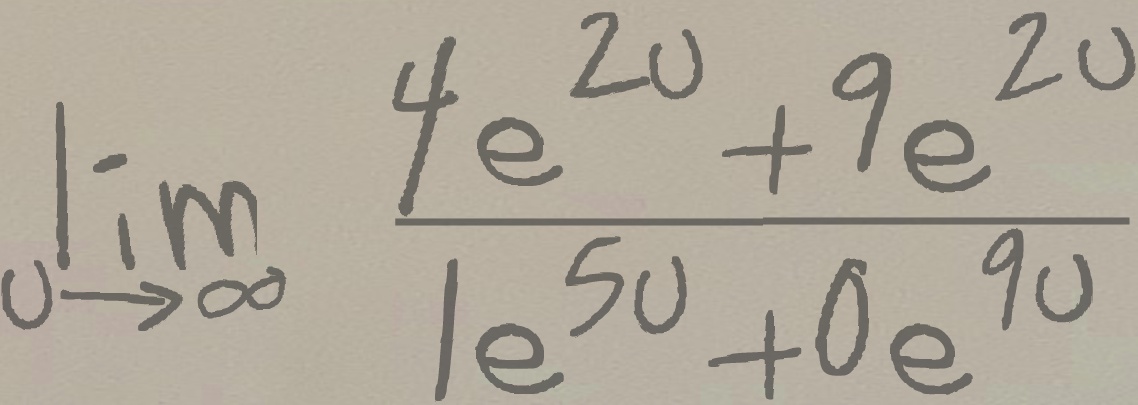 \lim_{u \to \infty} \frac{4e^{2u} + 9e^{2u}}{1e^{5u} + 0e^{9u}}